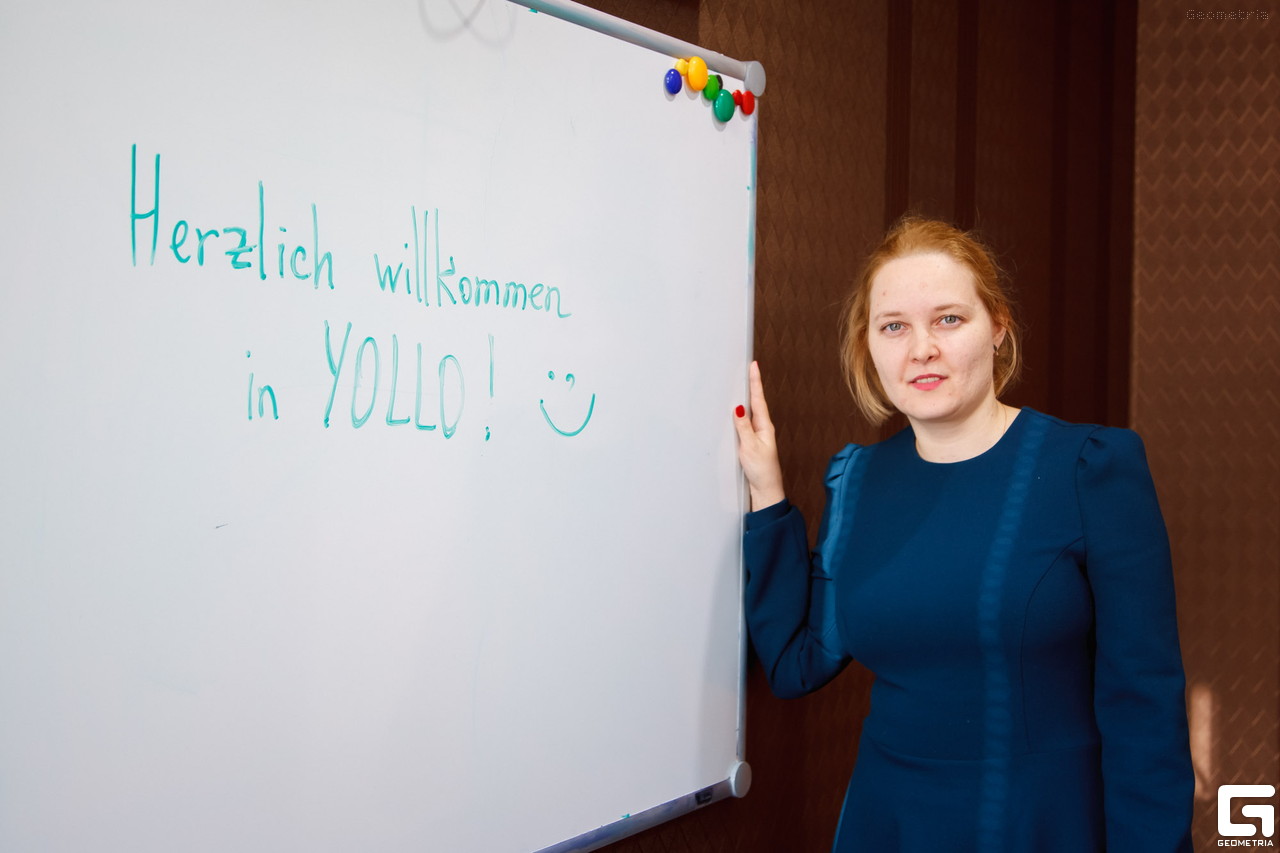 Geometria
Herzlich willkommen
in YOLLO!
GEOMETRIA